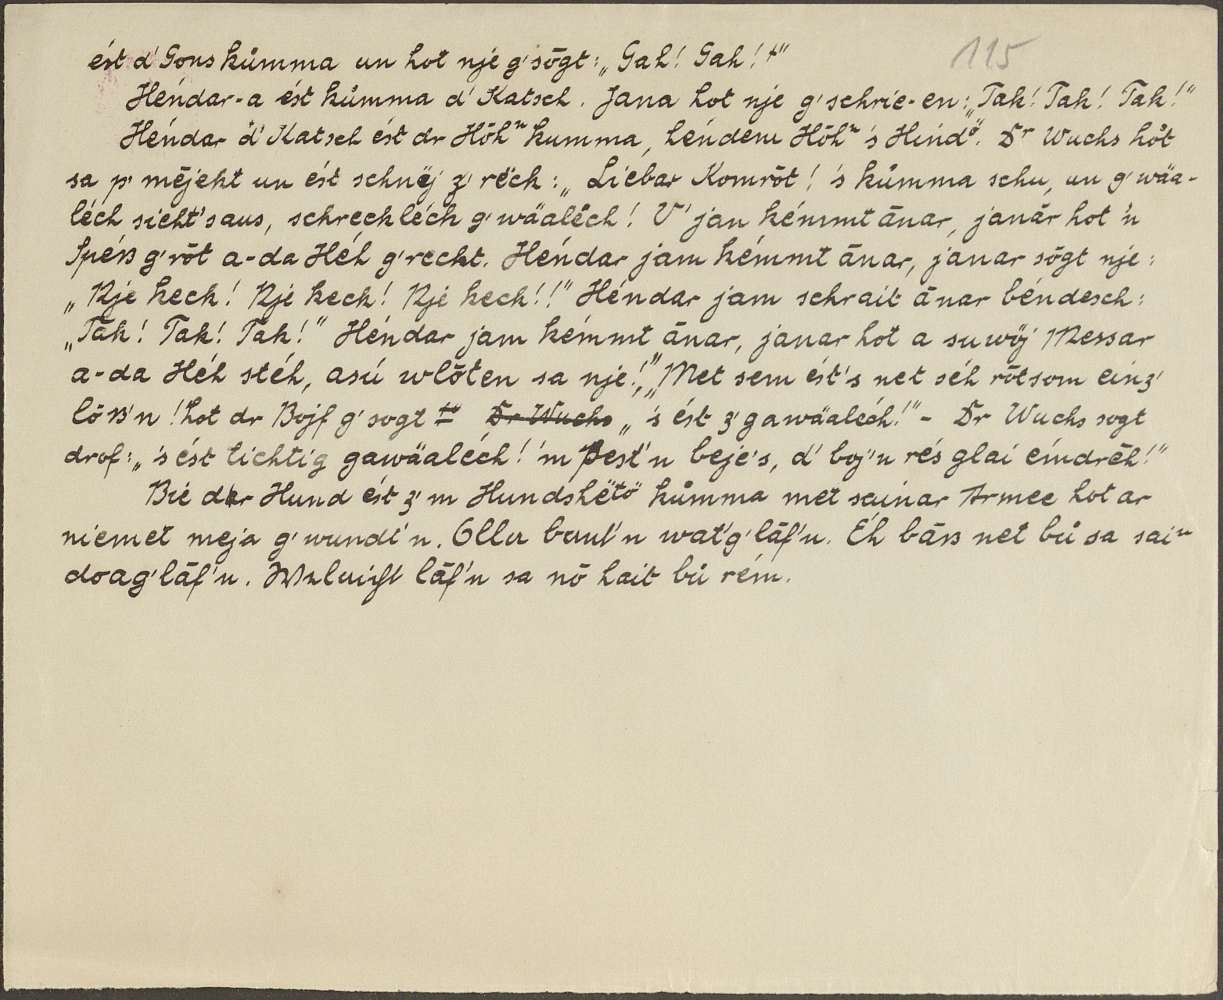 115
ést d' Gons kůmma un hot nje g'sōgt: „Gah! Gah!"
Héndar-a ést kůmma d' Katsch. Jana hot nje g'schrie-en: „Tak! Tak! Tak!"
Héndar d' Katsch ést dr Hōhⁿ kumma, héndem Hōhⁿ 's Hind. Dr Wuchs hůt
sa p' mējekt un ést schnëj z' rëck: „Liebar Komrōt! 's kůmma schu, un g'wäa-
léch sieht's aus, schreckléch g'wäaléch! V' jan kémmt ānar, janār hot 'n
Spéss g'rōt a-da Héh g'reckt. Héndar jam kémmt ānar, janar sōgt nje:
„Njé keck! Njé keck! Njé keck!!" Héndar jam schrait ānar béndesch:
„Tak! Tak! Tak!" Héndar jam kémmt ānar, janar hot a su wöj Messar
a-da Héh stéh, asú wlōten sa nje!" „Met sem ést's net séh rōtsom einz'
lōss'n! hot dr Bojf g'sogt „'s ést z' gawäaléch!" – Dr Wuchs sogt
drof: „'s ést tichtig gawäaléch! 'm Best'n beje's, d' boj'n rés glai eíndrēh!"
Bié dar Hund ést z'm Hundshëtö kůmma met sainar Armee hot ar
niemet meja g'wundi'n. Olla baut'n wat'g'lāf'n. Éh bāss net bů sa saiⁿ
doag'lāf'n. lāf'n sa nō hait bů rém.